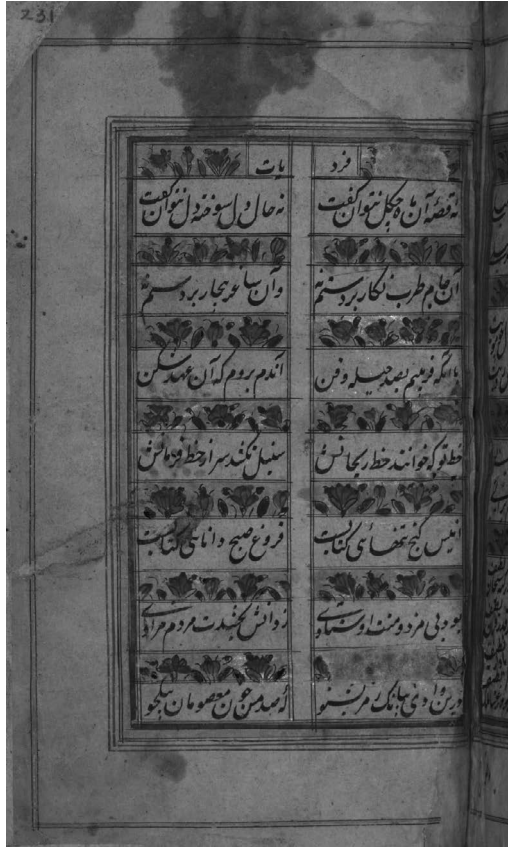 231
فرد یات
نه قصهٔ آن ماه چگل نتوان گفت نه حال دل سوخته دل نتوان گفت
آن جام طرب نگار بر دستم نه وآن ساغر بر دستم نه
با آنکه فریبم بصد حیله و فن آندم بردم که آن عهد شکن
خط تو که خوانند خط ریحانش سنبل نکشد سر از خط فرمانش
انیس کنج تنهائی کتابست فروغ صبح دانائی کتابست
بود بی مزد و منت اوستادی ز دانش بخشدت مردم مرادی
درین وادی ببانگ بشنو که صد من خون معصومان بیکجو